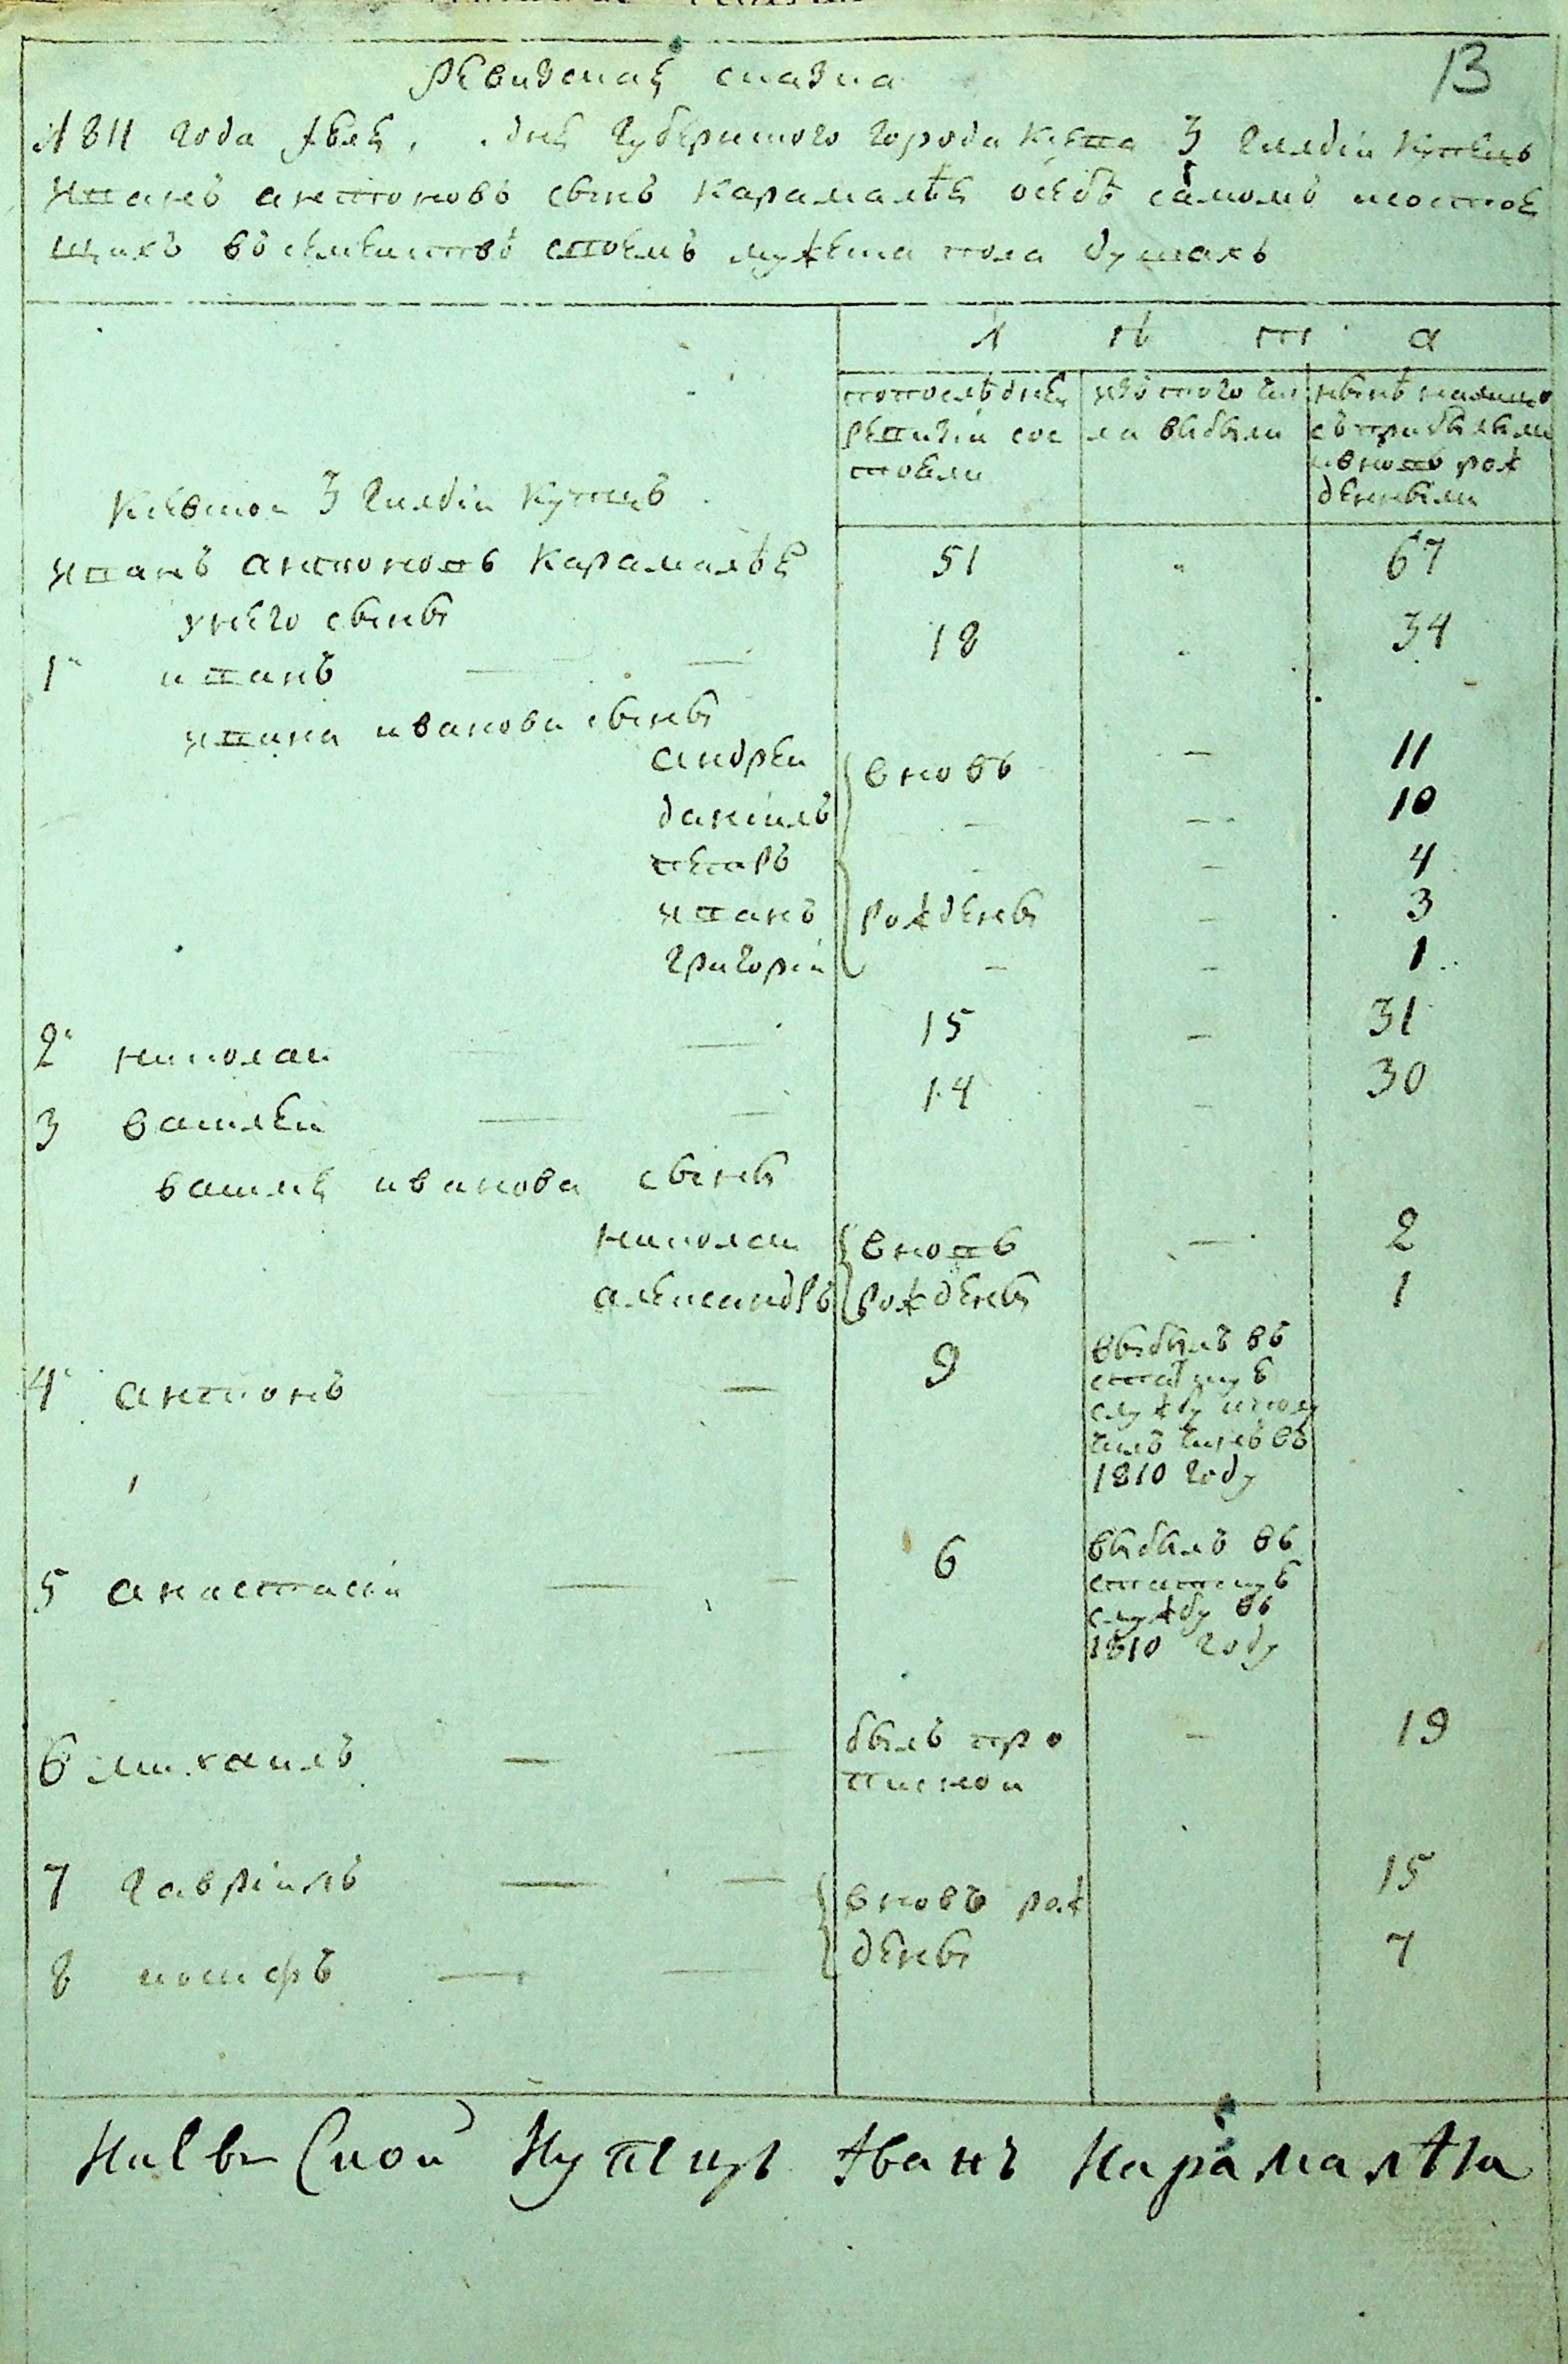 13
Ревизская сказка
1811 года дня Губернского города Киева 3 гилдіи Купецъ
Иванъ антоновъ сынъ Карамалѣя осебѣ самомъ исостоя
щихъ въсемеистве своемъ мужеска пола душахъ
Л ѣ т а
попоследнеи ревизіи сос тояли
изъ того чис ла выбыли
нынѣ налицо съ прибылыми ивновь рож денными
Киевскои 3 гилдіи Купецъ
Иванъ антоновъ Карамалѣя 51 67
унего сыны
1 иванъ — — 18 34
ивана иванова сыны
андреи вновь — 11
даніилъ — — 10
петръ — — 4
иванъ рождены — 3
григоріи — — 1
2 николаи — 15 — 31
3 василеи — — 14 — 30
василя иванова сыны
николаи вновь — 2
александръ рождены 1
4 антонъ — 9 выбылъ въ статскую службу иполу чилъ чинъ въ 1810 году
5 анастасіи — — 6 выбылъ въ статскую службу въ 1810 году
6 михаилъ — — былъ про писнои — 19
7 гавріилъ — — вновь рож 15
8 иосифъ — — дены 7
Киевъ Скои Купецъ Иванъ Карамалѣя